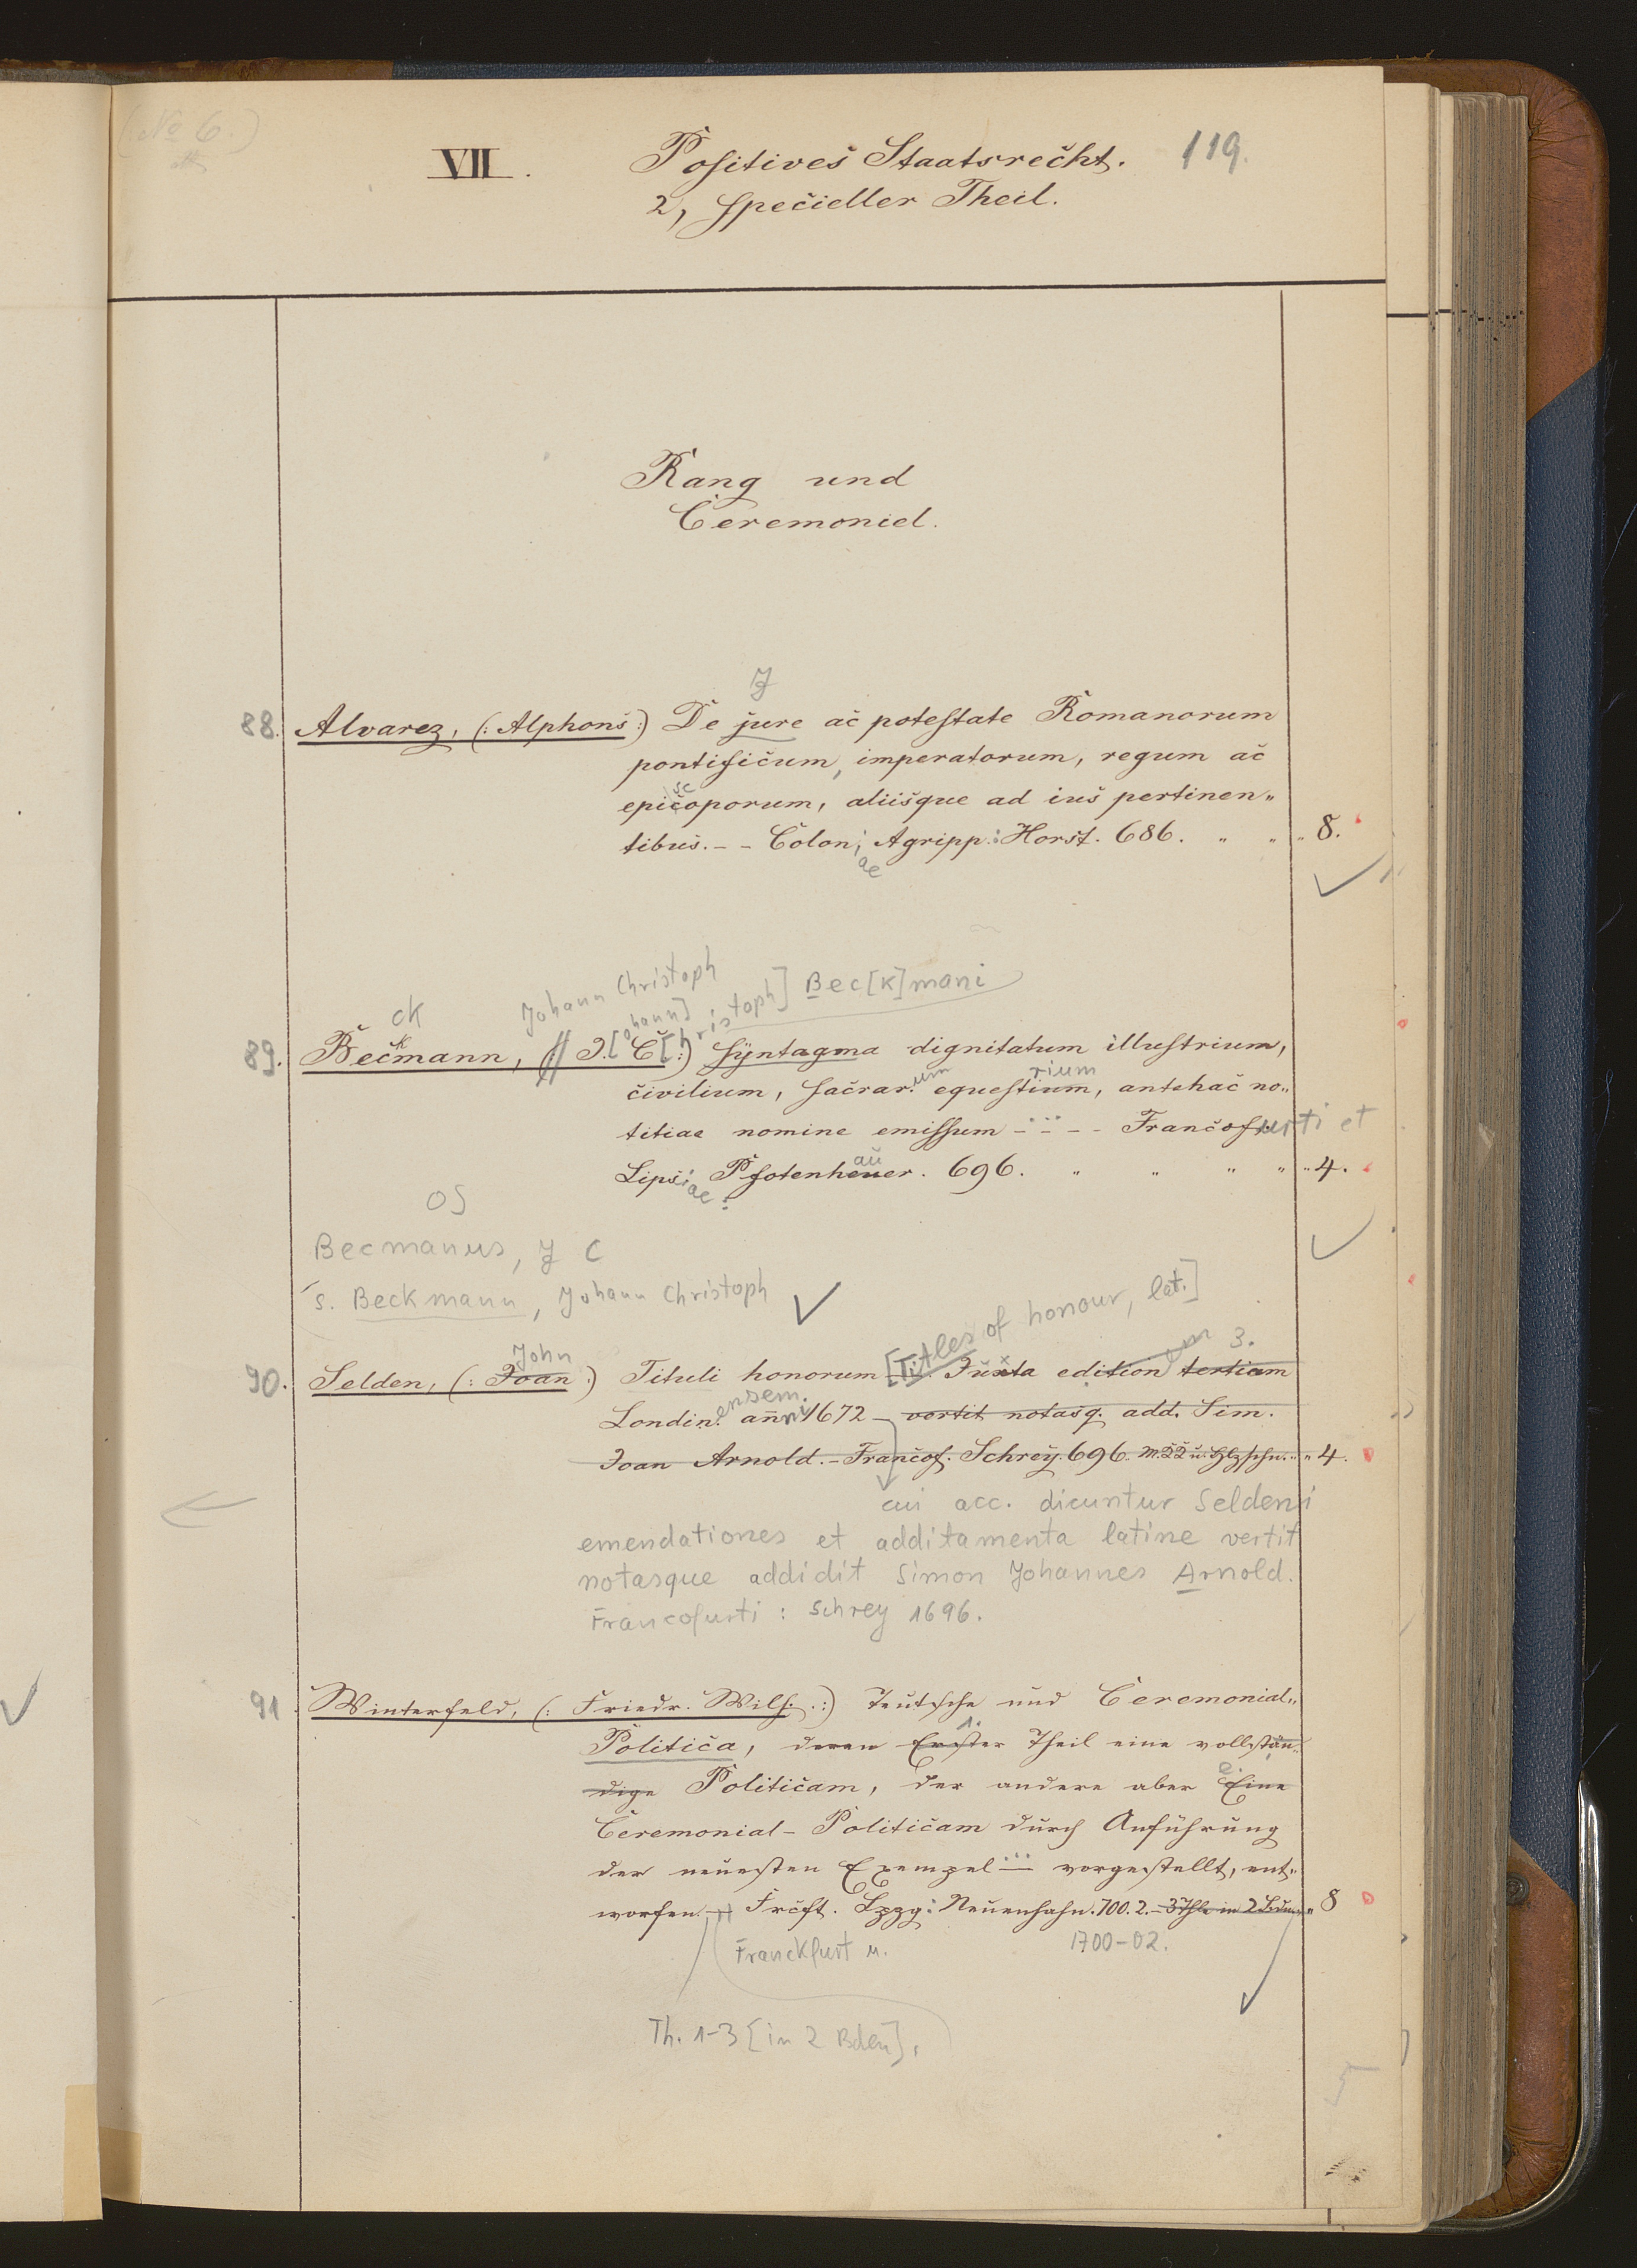 (No 6.)
VII. Positives Staatsrecht. 119.
2, specieller Theil.
Rang und
Ceremoniel.
J
88. Alvarez, (: Alphons :) De jure ac potestate Romanorum
pontificum, imperatorum, regum ac
sc
epicoporum, aliisque ad ius pertinen„
tibus. - - Colon; Agripp: Horst. 686. „ „ „ 8.
ae
Johann Christoph
[ohann] [hristoph] Bec[k]mani
ck
89. Becmann, (: J. C :) Syntagma dignitatum illustrium,
um rium
civilium, sacrar. equestium, antehac no„
titiae nomine emissum - - - - Francofurti et
au
Lips: Pfotenheuer. 696. „ „ „ „ „ 4.
ae :
OS
Becmanus, J C
s. Beckmann, Johann Christoph
[Titles of honour, lat.]
John 3.
90. Selden, (: Joan :) Tituli honorum Tit. Juxta edition tertiam
ensem. ni
Londin. ann 1672 - vertit notasq. add. Sim.
Joan Arnold. - Francof. Schrey. 696. „ 4.
cui acc. dicuntur Seldeni
emendationes et additamenta latine vertit
notasque addidit Simon Johannes Arnold.
Francofurti : Schrey 1696.
91 Winterfeld, (: Friedr. Wilh. :) Teutsche und Ceremonial„
1.
Politica, deren Erster Theil eine vollstän„
e.
dige Politicam, der andere aber Eine
Ceremonial- Politicam durch Anführung
der neuesten Exempel - vorgestellt, ent„
worfen. - Frcft. Lpzg: Neuenhahn. 700. 2. - 3 Thle in 2 Bdn. „ 8
Franckfurt u. 1700-02.
Th. 1-3 [in 2 Bden].